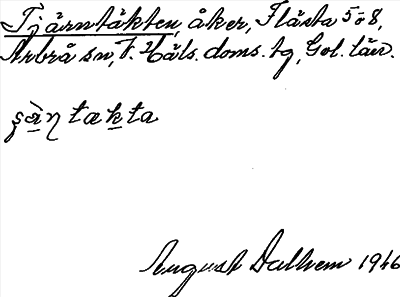 Tjärntäkten, åker, Flästa 5 o 8,
Arbrå sn, V. Häls. doms. tg, Gvl. län.
ʂä̀ɳ takta
August Dalhem 1946